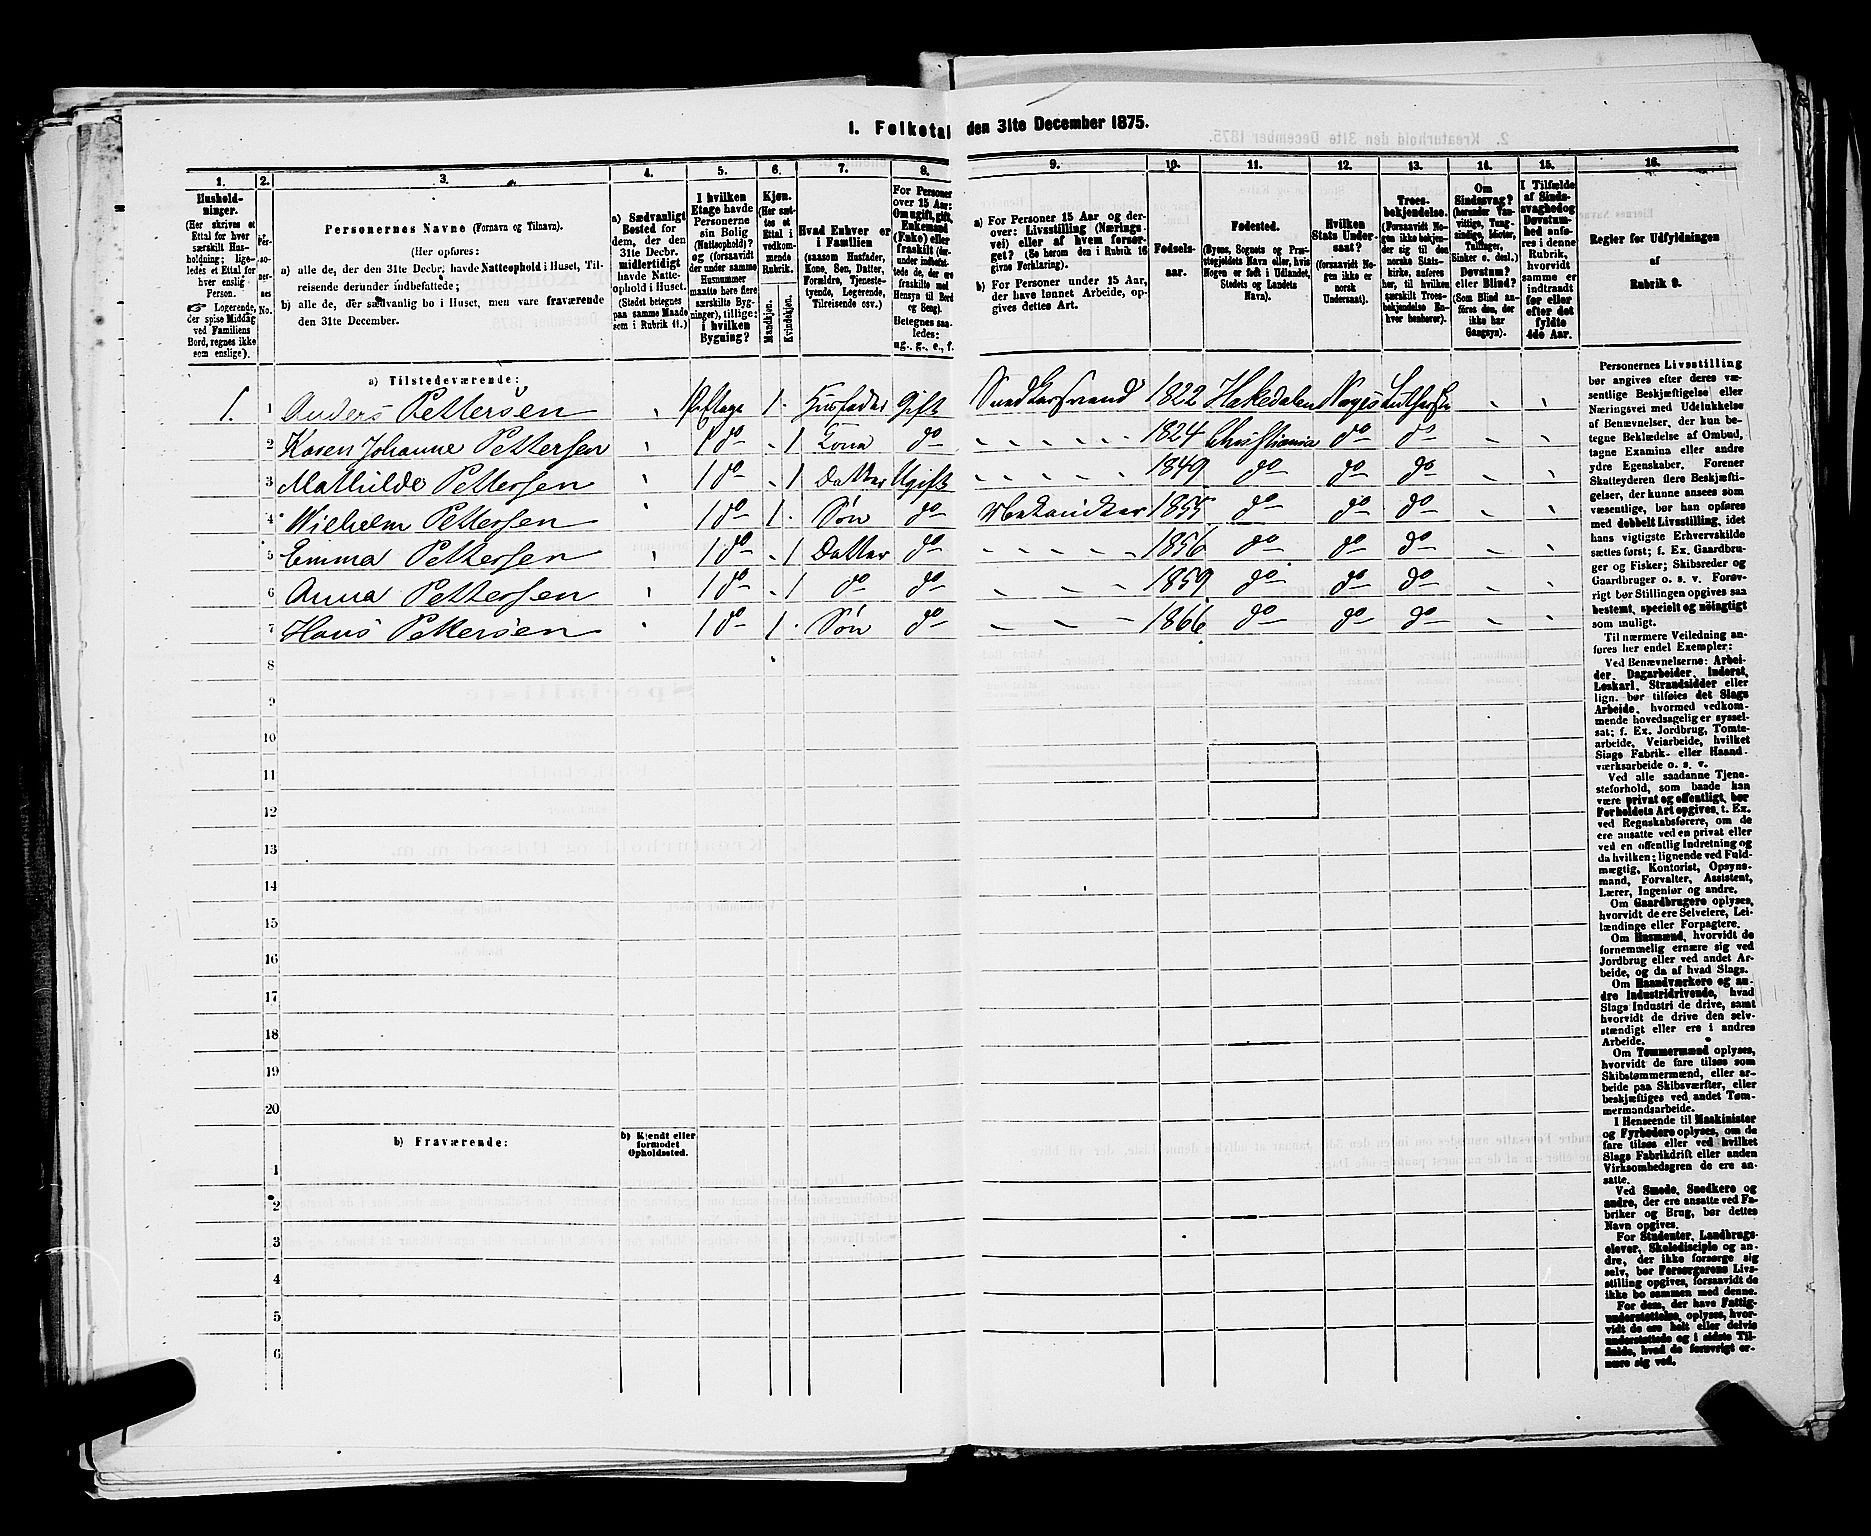 1. Folketal den 31te December 1875.
1. 2. 3. 4. 5. 6. 7. 8. 9. 10. 11. 12. 13. 14. 15. 16.
Hushold-
ninger.
(Her skrives et
Ettal for hver
særskilt Hus-
holdning; lige-
ledes et Ettal for
hver enslig
Person.
☞ Logerende,
der spise Middag
ved Familiens
Bord, regnes ikke
som enslige).
Per-
so-
ner-
nes
No.
Personernes Navne (Fornavn og Tilnavn).
(Her opføres:
a) alle de, der den 31te Decbr. havde Natteophold i Huset, Til-
reisende derunder indbefattede;
b) alle de, der sædvanlig bo i Huset, men vare fraværende
den 31te December.
a) Sædvanligt
Bosted for
dem, der den
31te Decbr.
midlertidigt
havde Natte-
ophold i Huset.
(Stedet betegnes
paa samme Maade
som i Rubrik 11.)
I hvilken
Etage havde
Personerne
sin Bolig?
(Natteophold)?
og (forsaavidt
der under samme
Husnummer
maatte høre flere
særskilte Byg-
ninger), tillige:
i hvilken
Bygning?
Kjøn.
(Her sæt-
tes et
Ettal i
vedkom-
mende
Rubrik.
Mandkjøn.
Kvindekjøn.
Hvad Enhver er
i Familien
(saasom Husfader,
Kone, Søn, Datter,
Forældre, Tjeneste-
tyende, Logerende,
Tilreisende osv.)
For Personer
over 15 Aar:
Om ugift, gift,
Enkemand
(Enke) eller
fraskilt (der-
under indbefat-
tede de, der ere
fraskilte med
Hensyn til Bord
og Seng).
Betegnes saa-
ledes:
ug., g., e., f.
a) For Personer 15 Aar og der-
over: Livsstilling (Nærings-
vei) eller af hvem forsør-
get? (Se herom den i Rubrik 16
givne Forklaring).
b) For Personer under 15 Aar,
der have lønnet Arbeide, op-
gives dettes Art.
Fødsels-
aar.
Fødested.
(Byens, Sognets og Præ-
stegjeldets Navn eller, hvis
Nogen er født i Udlandet,
Stedets og Landets
Navn).
Hvilken
Stats Under-
saat?
(forsaavidt No-
gen ikke er
norsk
Undersaat).
Troes-
bekjendelse.
(Forsaavidt No-
gen ikke bekjen-
der sig til den
norske Stats-
kirke, anføres
her, til hvilken
særskilt Troes-
bekjendelse En-
hver henhører).
Om
Sindssvag?
(herunder Van-
vittige, Tung-
sindige, Idioter,
Taullinger,
Sinker o. desl.)
Døvstum?
eller Blind?
(Som Blind an-
føres den, der
ikke har
Gangsyn).
I Tilfælde
af Sinds-
svaghed og
Døvstum-
hed anfø-
res i denne
Rubrik,
hvorvidt
samme er
indtraadt
før eller
efter det
fyldte
4de Aar.
Regler for Udfyldningen
af
Rubrik 9.
a) Tilstedeværende:
1. 1 Anders Pettersen 1ste Etage 1 Husfader Gift 1822 Hakedalen Norges Lutherske
2 Karen Johanne Pettersen 1 do 1 Kona do 1824 Christiania do do
3 Mathilde Pettersen 1 do 1 Datter Ugift 1849 do do do
4 Wilhelm Pettersen 1 do 1 Søn do 1855 do do do
5 Emma Pettersen 1 do 1 Datter do 1856 do do do
6 Anna Pettersen 1 do 1 do do 1859 do do do
7 Hans Pettersen 1 do 1 Søn do 1866 do do do
8
9
10
11
12
13
14
15
16
17
18
19
20
b) Fraværende:
b) Kjendt eller
formodet
Opholdssted.
1
2
3
4
5
6
Personernes Livsstilling
bør angives efter deres væ-
sentlige Beskjæftigelse eller
Næringsvei med Udelukkelse
af Benævnelser, der kun be-
tegne Beklædelse af Ombud,
tagne Examina eller andre
ydre Egenskaber. Forener
Skatteyderen flere Beskjæfti-
gelser, der kunne ansees som
væsentlige, bør han opføres
med dobbelt Livsstilling, idet
hans vigtigste Erhvervskilde
sættes først; f. Ex. Gaardbru-
ger og Fisker; Skibsreder og
Gaardbruger o. s. v. Forøv-
rigt bør Stillingen opgives saa
bestemt, specielt og nöiagtigt
som muligt.
Til nærmere Veiledning an-
føres her endel Exempler:
Ved Benævnelserne: Arbei-
der, Dagarbeider, Inderst,
Løskarl, Strandsidder eller
lign. bør tilføies det Slags
Arbeide, hvormed vedkom-
mende hovedsagelig er syssel-
sat; f. Ex. Jordbrug, Tomte-
arbeide, Veiarbeide, hvilket
Slags Fabrik- eller Haand-
værksarbeide o. s. v.
Ved alle saadanne Tjene-
steforhold, som baade kan
være privat og offentligt, bør
Forholdets Art opgives, t. Ex.
ved Regnskabsførere, om de
ere ansatte ved en privat eller
ved en offentlig Indretning og
da hvilken; lignende ved Fuld-
mægtig, Kontorist, Opsyns-
mand, Forvalter, Assistent,
Lærer, Ingeniør og andre.
Om Gaardbrugere oplyses,
hvorvidt de ere Selveiere, Lei-
lændinge eller Forpagtere.
Om Husmænd, hvorvidt de
fornemmelig ernære sig ved
Jordbrug eller ved andet Ar-
beide, og da af hvad Slags.
Om Haandværkere og an-
dre Industridrivende, hvad
Slags Industri de drive, samt
hvorvidt de drive den selv-
stændigt eller ere i andres
Arbeide.
Om Tømmermænd oplyses,
hvorvidt de fare tilsøs som
Skibstømmermænd, eller ar-
beide paa Skibsværfter, eller
beskjæftiges ved andet Tøm-
mermandsarbeide.
I Henseende til Maskinister
og Fyrbødere oplyses, om de
fare tilsøs eller ved hvilket
Slags Fabrikdrift eller anden
Virksomhedsgren de ere an-
satte.
Ved Smede, Snedkere og
andre, der ere ansatte ved Fa-
briker og Brug, bør dettes
Navn opgives.
For Studenter, Landbrugs-
elever, Skoledisciple og an-
dre, der ikke forsørge sig
selv, bør Forsørgerens Livs-
stilling opgives, forsaavidt de
ikke bo sammen med denne.
For dem, der have Fattig-
understøttelse, oplyses, hvor-
vidt de ere helt eller delvis
understøttede og i sidste Til-
fælde, hvad de forøvrigt er-
nære sig ved.